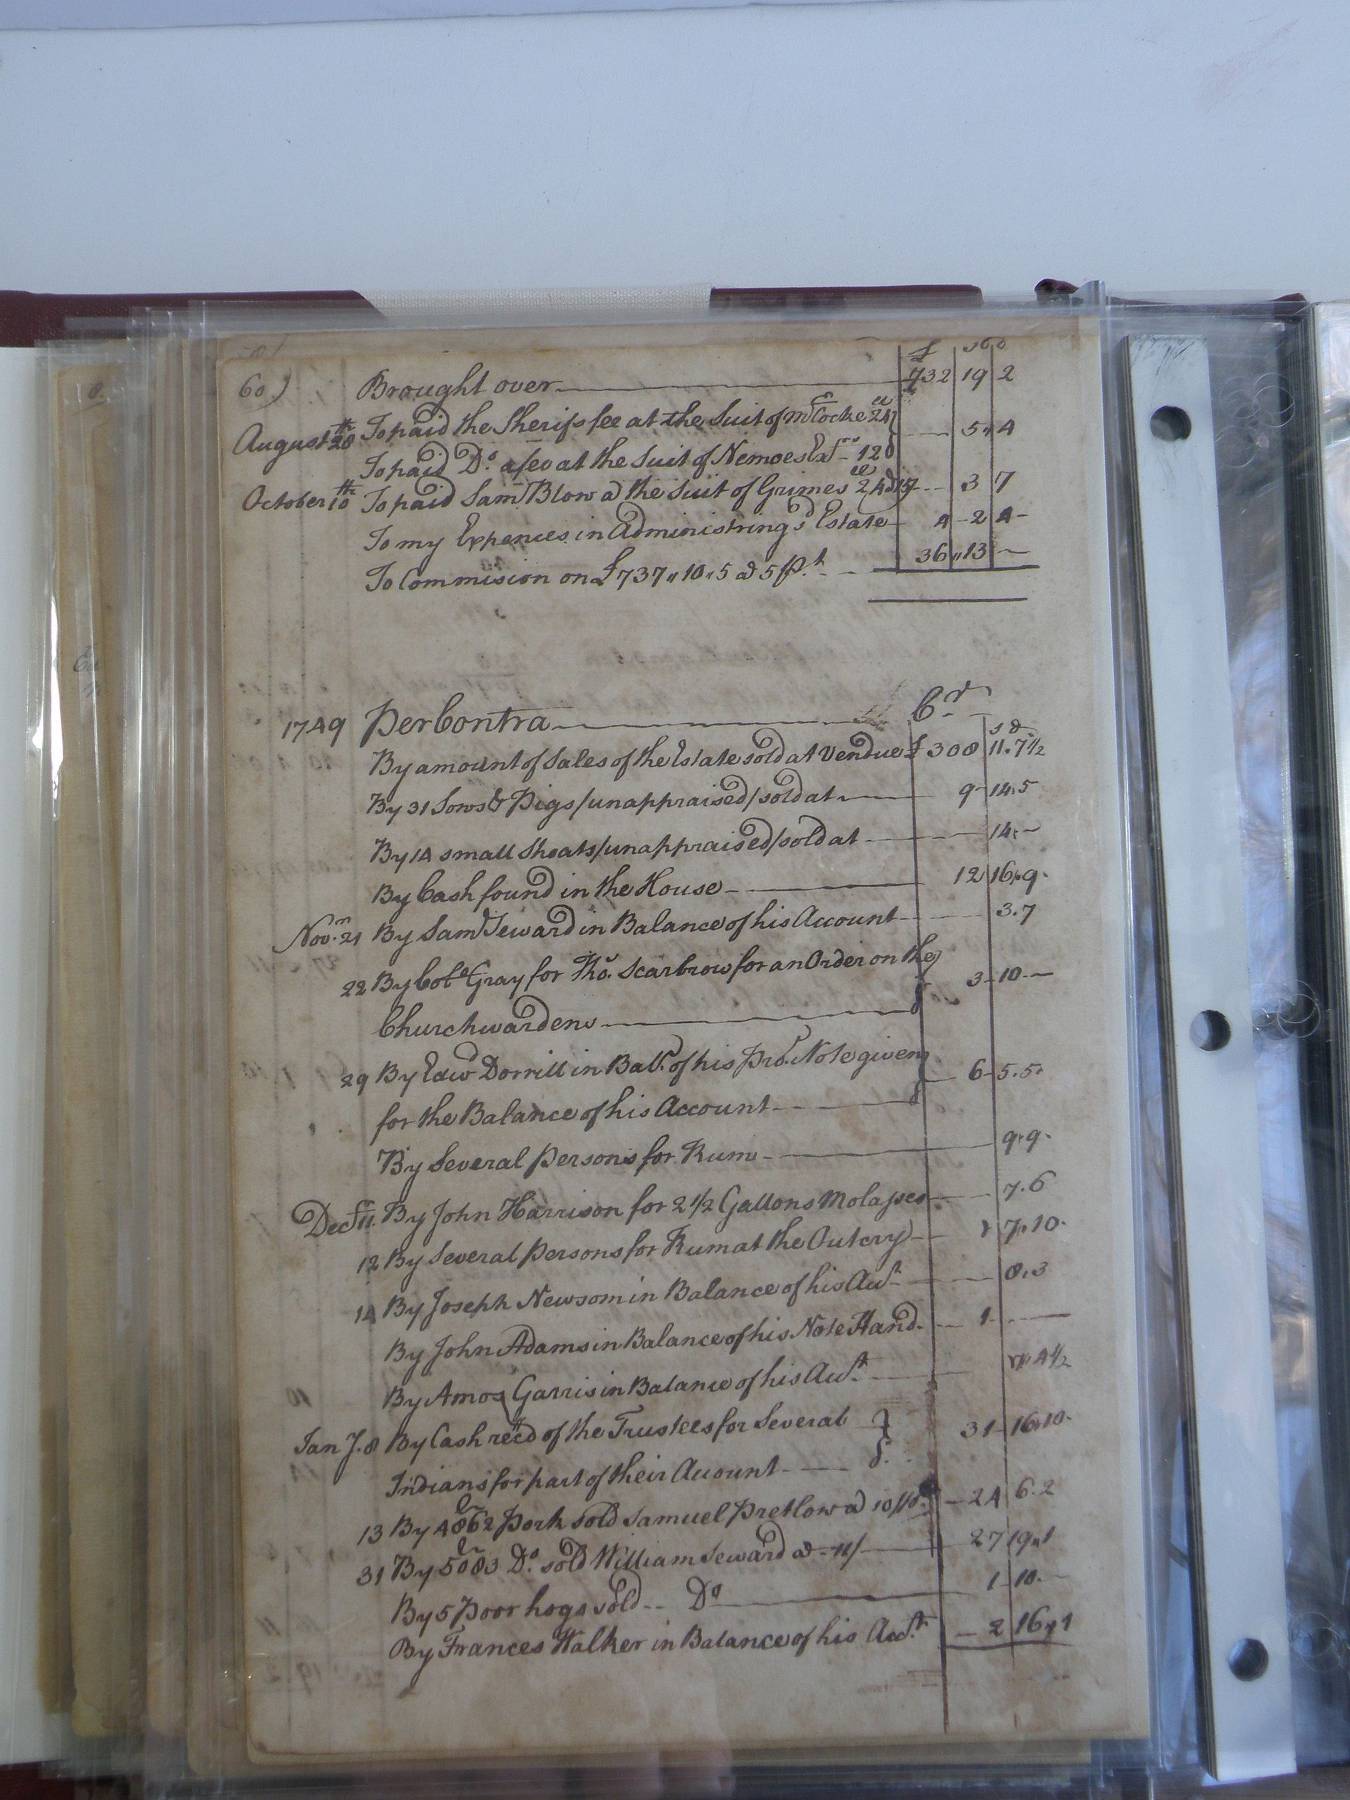 60) Brought over £ 732 19 2
August 28th To paid the Sherifs fee at the Suit of Mr Cocke 24 5 4
To paid Do a feo at the Suit of Nemoes Exrs 120
October 10th To paid Saml Blow @ the Suit of Grimes 3 7
To my Expences in Administring sd Estate 4 2 4
To Commision on £737 10 5 @ 5 pCt 36 13 —
1749 Per Contra Cr
s d
By amount of Sales of the Estate sold at Vendue £ 308 11. 7 1/2
By 31 Sows & Pigs/unappraised/sold at 9 14. 5
By 14 small Shoats/unappraised/sold at 14. —
By Cash found in the House 12 16. 9
Novr 21 By Saml Seward in Balance of his Account 3. 7
22 By Colo Gray for Tho. Scarbrow for an Order on the 3 10 —
Churchwardens
29 By Edwd Dorrill in Ball. of his pro. Note given 6 5. 5
for the Balance of his Account
By Several Persons for Rum 9. 9
Decr 11 By John Harrison for 2 1/2 Gallons Molasses 7. 6
12 By Several Persons for Rum at the Outcry 7. 10
14 By Joseph Newsom in Balance of his Acct 8. 3
By John Adams in Balance of his Note Hand 1 — —
By Amos Garris in Balance of his Acct 4 1/2
Jany. 8 By Cash recd of the Trustees for Several 31 16. 10
Indians for part of their Account
13 By 4862 Pork sold Samuel Pretlow @ 10/ 24 6. 2
31 By 5083 Do. sold William Seward @ 11/ 27 19. 1
By 5 Poor hogs sold Do 1 10. —
By Frances Walker in Balance of his Acct. 2 16. 1